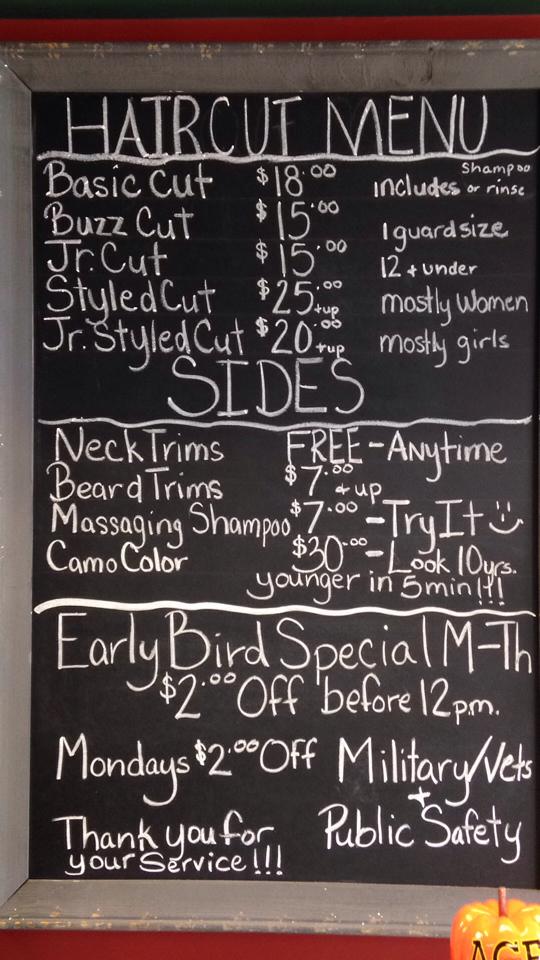 HAIRCUT MENU
Basic Cut $18.00 includes Shampoo or rinse
Buzz Cut $15.00 1 guard size
Jr. Cut $15.00 12 + under
Styled Cut $25.00 +up mostly women
Jr. Styled Cut $20.00 +up mostly girls
SIDES
Neck Trims FREE - Anytime
Beard Trims $7.00 + up
Massaging Shampoo $7.00 - Try It
Camo Color $30.00 - Look 10yrs.
younger in 5 min!!!
Early Bird Special M-Th
$2.00 Off before 12 p.m.
Mondays $2.00 Off Military/Vets
+
Thank you for Public Safety
your Service!!!